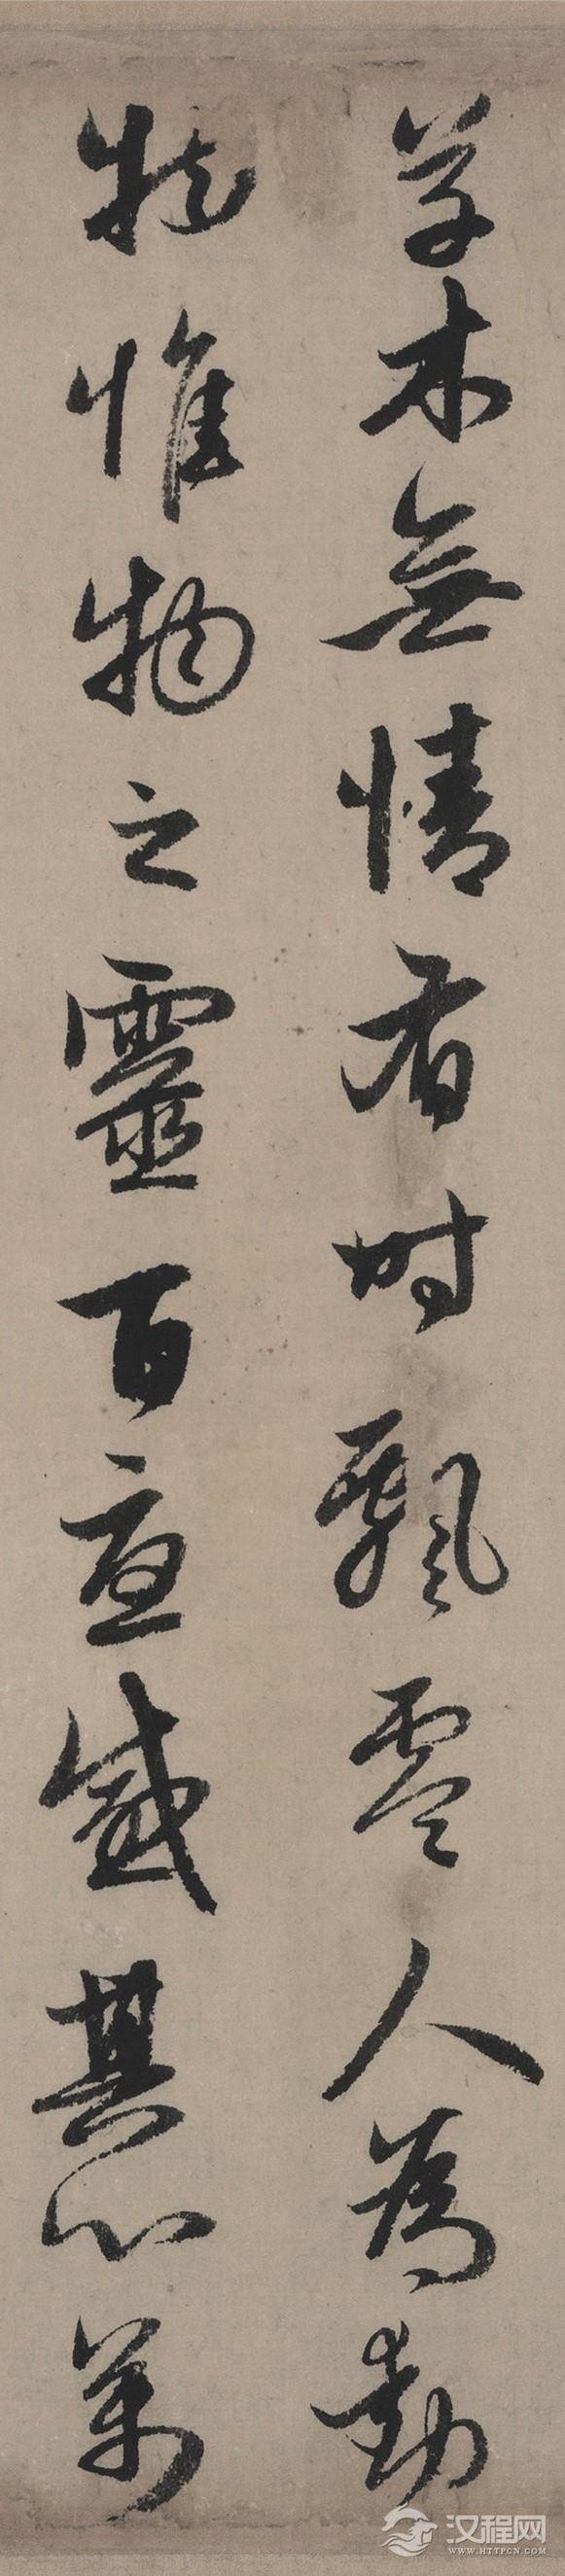 草木無情有时飄零人為動
物惟物之靈百㥑感其心万
汉程网
WWW.HTTPCN.COM